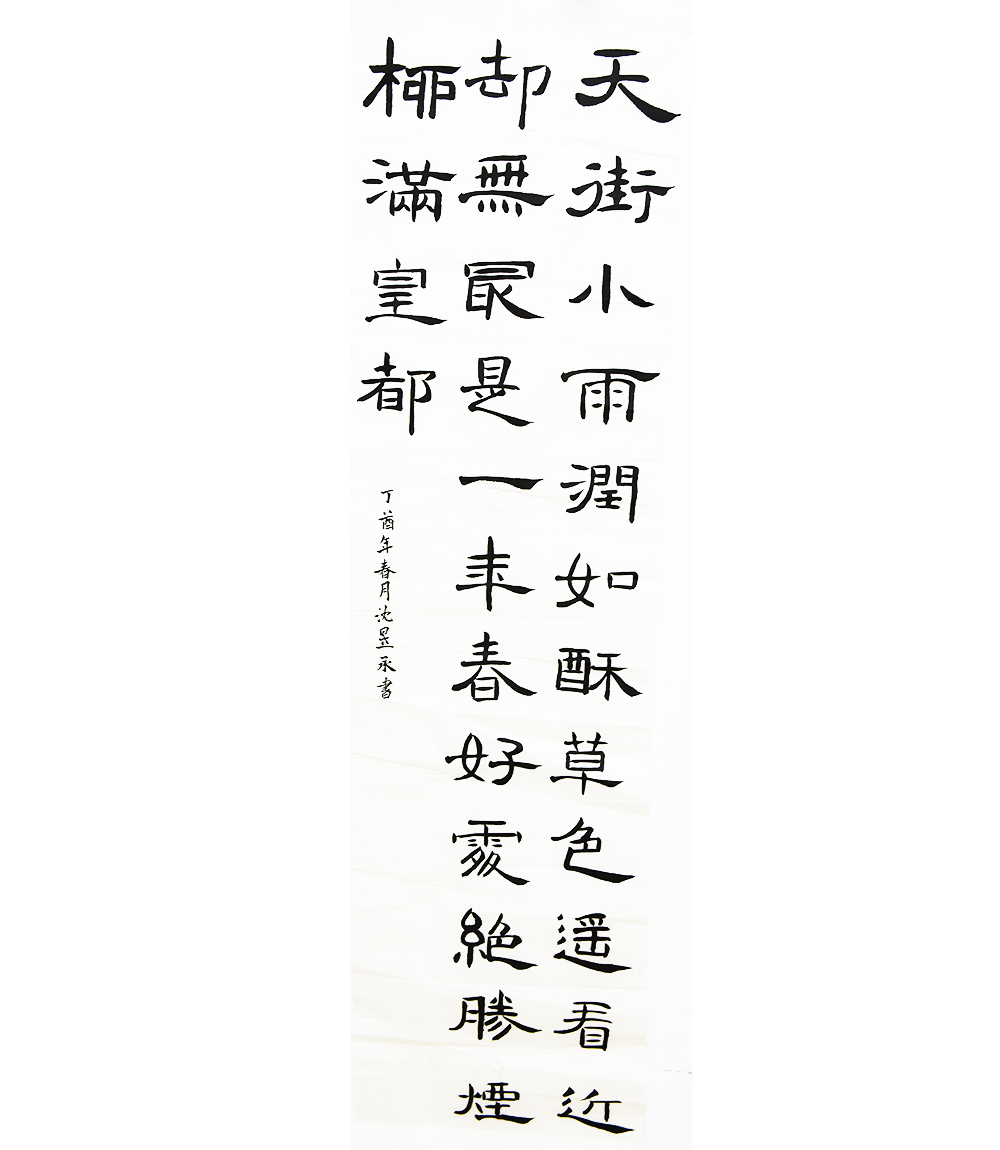 天街小雨潤如酥草色遥看近
却無冣是一年春好處絶勝煙
柳滿皇都
丁酉年春月沈昱承書